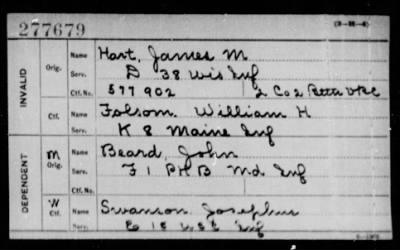 277679
INVALID
Orig.
Name Hart, James M
Serv. D 38 Wis Inf
Ctf. No. 577902 2 Co 2 Batta VRC
Ctf.
Name Folsom William H
Serv. K 8 Maine Inf
DEPENDENT
M
Orig.
Name Beard, John
Serv. F 1 PHB Md Inf
Ctf. No.
W
Ctf.
Name Swanson Josephus
Serv. 18 Inf